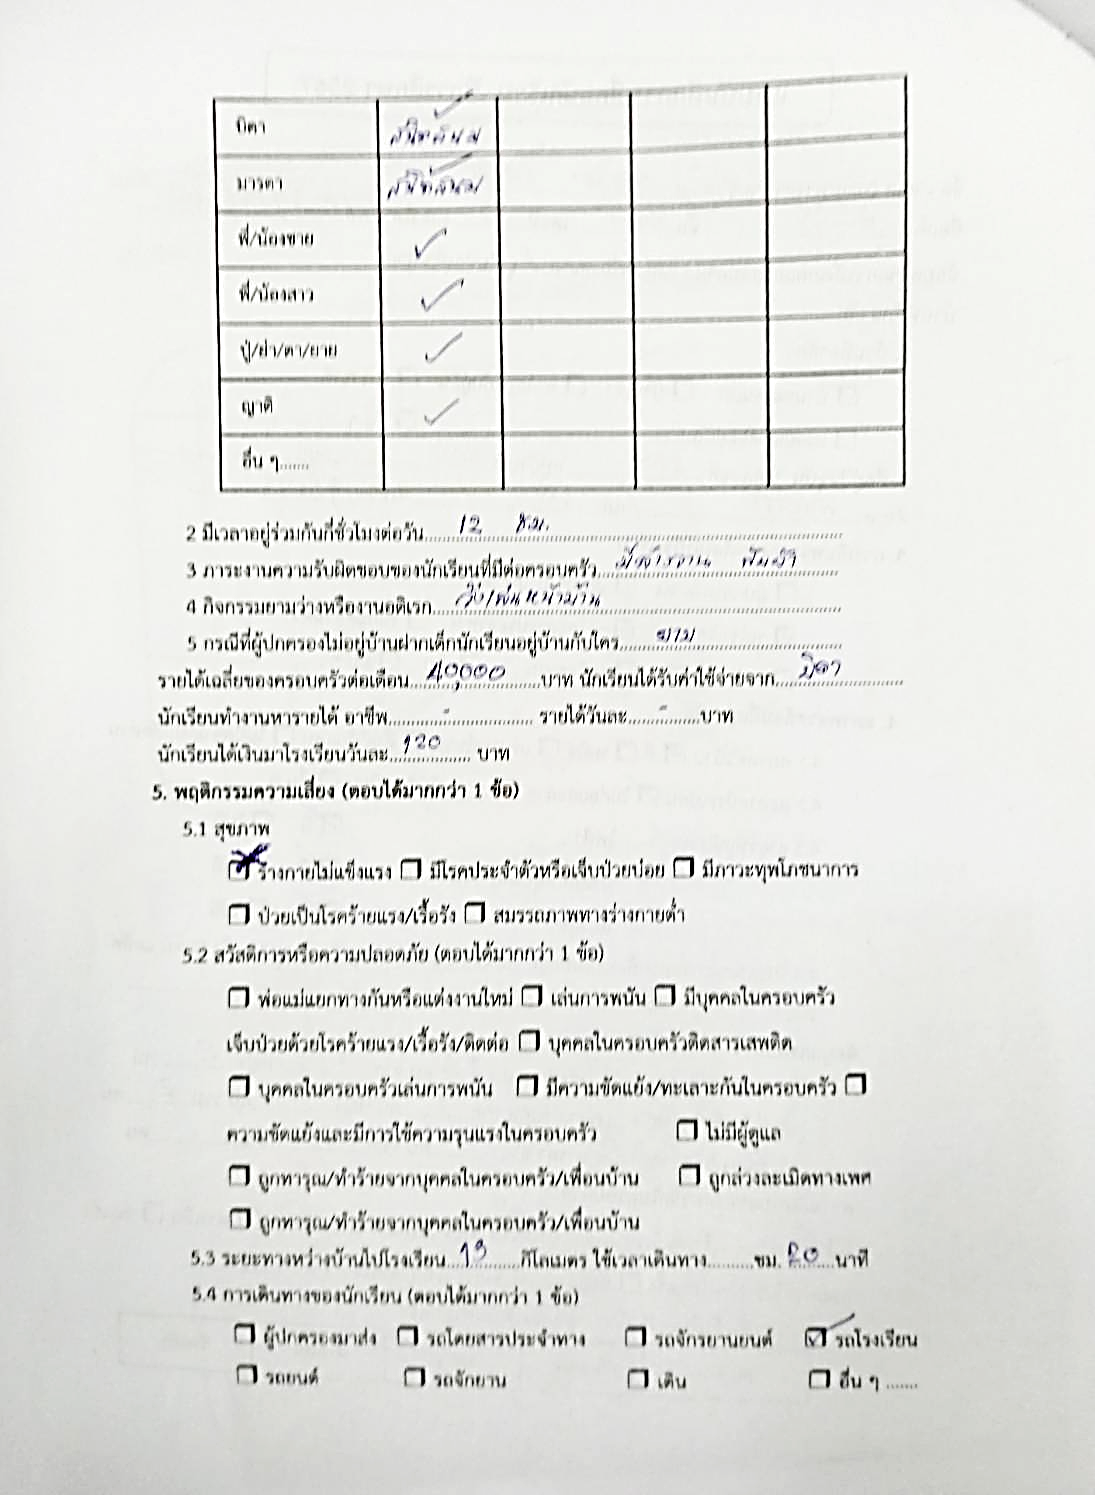 บิดา สนิทสนม
มารดา สนิทสนม
พี่/น้องชาย
พี่/น้องสาว
ปู่/ย่า/ตา/ยาย
ญาติ
อื่น ๆ.......
2 มีเวลาอยู่ร่วมกันกี่ชั่วโมงต่อวัน 12 ชม.
3 ภาระงานความรับผิดชอบของนักเรียนที่มีต่อครอบครัว
4 กิจกรรมยามว่างหรืองานอดิเรก วิ่งเล่นหน้าบ้าน
5 กรณีที่ผู้ปกครองไม่อยู่บ้านฝากเด็กนักเรียนอยู่บ้านกับใคร
รายได้เฉลี่ยของครอบครัวต่อเดือน 40,000 บาท นักเรียนได้รับค่าใช้จ่ายจาก บิดา
นักเรียนทำงานหารายได้ อาชีพ - รายได้วันละ - บาท
นักเรียนได้เงินมาโรงเรียนวันละ 120 บาท
5. พฤติกรรมความเสี่ยง (ตอบได้มากกว่า 1 ข้อ)
5.1 สุขภาพ
ร่างกายไม่แข็งแรง ☐ มีโรคประจำตัวหรือเจ็บป่วยบ่อย ☐ มีภาวะทุพโภชนาการ
☐ ป่วยเป็นโรคร้ายแรง/เรื้อรัง ☐ สมรรถภาพทางร่างกายต่ำ
5.2 สวัสดิการหรือความปลอดภัย (ตอบได้มากกว่า 1 ข้อ)
☐ พ่อแม่แยกทางกันหรือแต่งงานใหม่ ☐ เล่นการพนัน ☐ มีบุคคลในครอบครัว
เจ็บป่วยด้วยโรคร้ายแรง/เรื้อรัง/ติดต่อ ☐ บุคคลในครอบครัวติดสารเสพติด
☐ บุคคลในครอบครัวเล่นการพนัน ☐ มีความขัดแย้ง/ทะเลาะกันในครอบครัว ☐
ความขัดแย้งและมีการใช้ความรุนแรงในครอบครัว ☐ ไม่มีผู้ดูแล
☐ ถูกทารุณ/ทำร้ายจากบุคคลในครอบครัว/เพื่อนบ้าน ☐ ถูกล่วงละเมิดทางเพศ
☐ ถูกทารุณ/ทำร้ายจากบุคคลในครอบครัว/เพื่อนบ้าน
5.3 ระยะทางหว่างบ้านไปโรงเรียน กิโลเมตร ใช้เวลาเดินทาง..........ชม. 20 นาที
5.4 การเดินทางของนักเรียน (ตอบได้มากกว่า 1 ข้อ)
☐ ผู้ปกครองมาส่ง ☐ รถโดยสารประจำทาง ☐ รถจักรยานยนต์ ☑ รถโรงเรียน
☐ รถยนต์ ☐ รถจักยาน ☐ เดิน ☐ อื่น ๆ .......